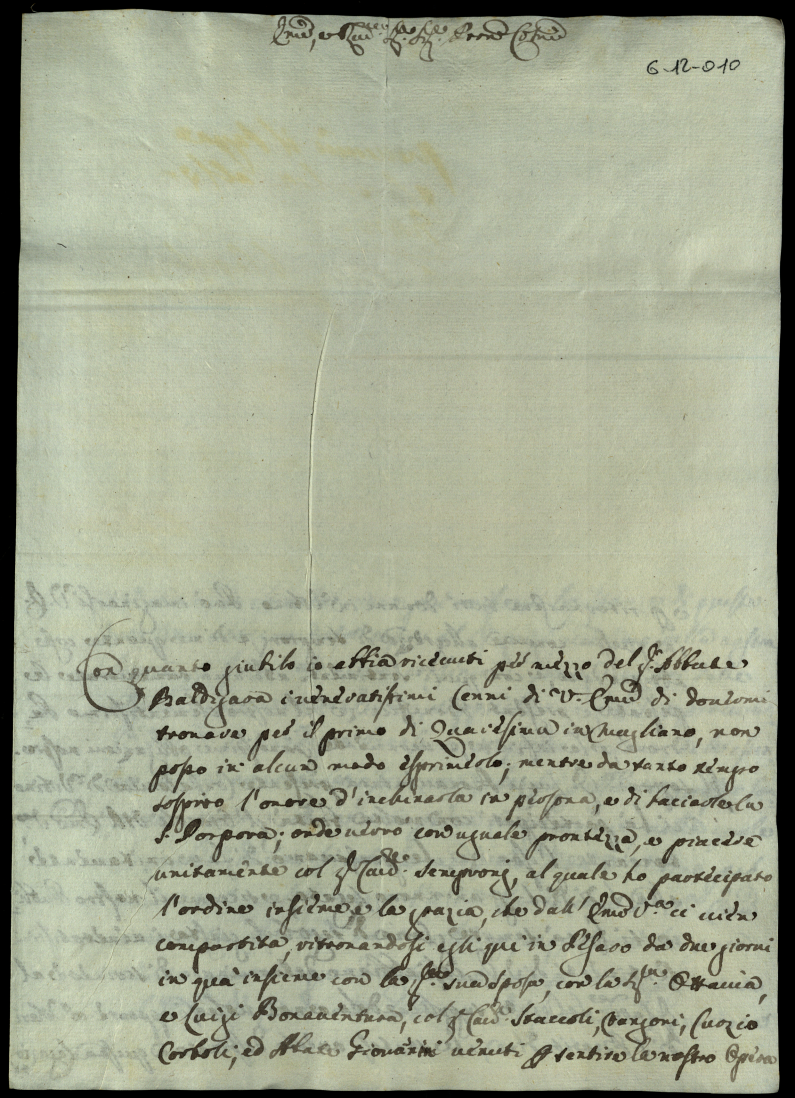 Em̃o, e Rev.mo Sig.re Sig.re Pron̄e Col̃mo
6-12-010
Con quanto giubilo io abbia ricevuti per mezzo del S.r Abbate
Baldigara i veneratissimi Cenni di V.ra Em̃a di dovermi
trovare per il primo di Quaresima in Magliano, non
posso in alcun modo esprimerlo; mentre da tanto tempo
sospiro l'onore d'inchinarla in persona, e di bacciarle la
S. Porpora; onde verrò con uguale prontezza, e piacere
unitamente col S.r Cav.re Semproni, al quale ho partecipato
l'ordine insieme, e la grazia, che dall' Em̃a V.ra ci vien
compartita, ritrovandosi egli quì in Pesaro da due giorni
in quà insieme con la S.ra sua sposa, con la S.ra Ottavia,
e Luigi Bonaventura, col S.r Cav.re Staccoli, Curzio
Corboli, ed Abate Giovanni venuti p sentire la nostra Opera